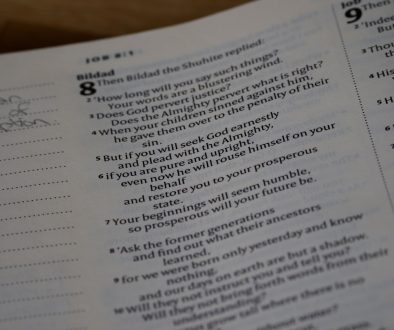 JOB 8:1
Bildad
8 Then Bildad the Shuhite replied:
2 'How long will you say such things?
Your words are a blustering wind.
3 Does God pervert justice?
Does the Almighty pervert what is right?
4 When your children sinned against him,
he gave them over to the penalty of their
sin.
5 But if you will seek God earnestly
and plead with the Almighty,
6 if you are pure and upright,
even now he will rouse himself on your
behalf
and restore you to your prosperous
state.
7 Your beginnings will seem humble,
so prosperous will your future be.
8 'Ask the former generations
and find out what their ancestors
learned,
9 for we were born only yesterday and know
nothing,
and our days on earth are but a shadow.
10 Will they not instruct you and tell you?
Will they not bring forth words from their
understanding?
grow tall where there is no
Job
9 Then
2 'Indee
But
3 Thou
4 His
5 H
6 H